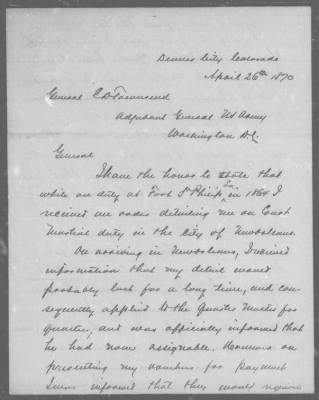 Denver City Colorado
April 26th 1870
General E D Townsend
Adjutant General US Army
Washington D.C.
General
I have the honor to state that
while on duty at Fort St Philip La, in 1868 I
received an order detailing me on Court
Martial duty in the City of New Orleans.
On arriving in New Orleans, I received
information that my detail would
probably last for a long time, and con-
sequently applied to the Quarter Master for
quarters, and was officially informed that
he had none assignable. However on
presenting my vouchers for payment
I was informed that they would require